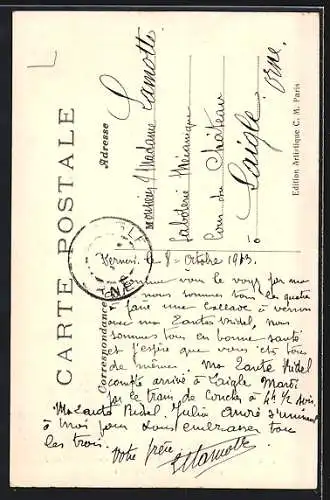 CARTE POSTALE
Correspondance
Adresse
Monsieur & Madame Lamotte
Saboterie Mécanique
Cour du Château
à Laigle
Orne.
Edition Artistique C. M. Paris
Verneuil le 8 - Octobre 1913.
Comme vous le voyez par ma
nous sommes tous les quatre
à faire une ballade à Verneuil
avec ma Tante Bidel, nous
sommes tous en bonne santé
et j'espère que vous êtes tous
de même. Ma Tante Bidel
compte arrivé à Laigle Mardi
par le train de Conches à 4h 1/2 soir.
Ma Tante Bidel. Julia André s'unissent
à moi pour vous embrasser tous
les trois. Votre frère
Lamotte